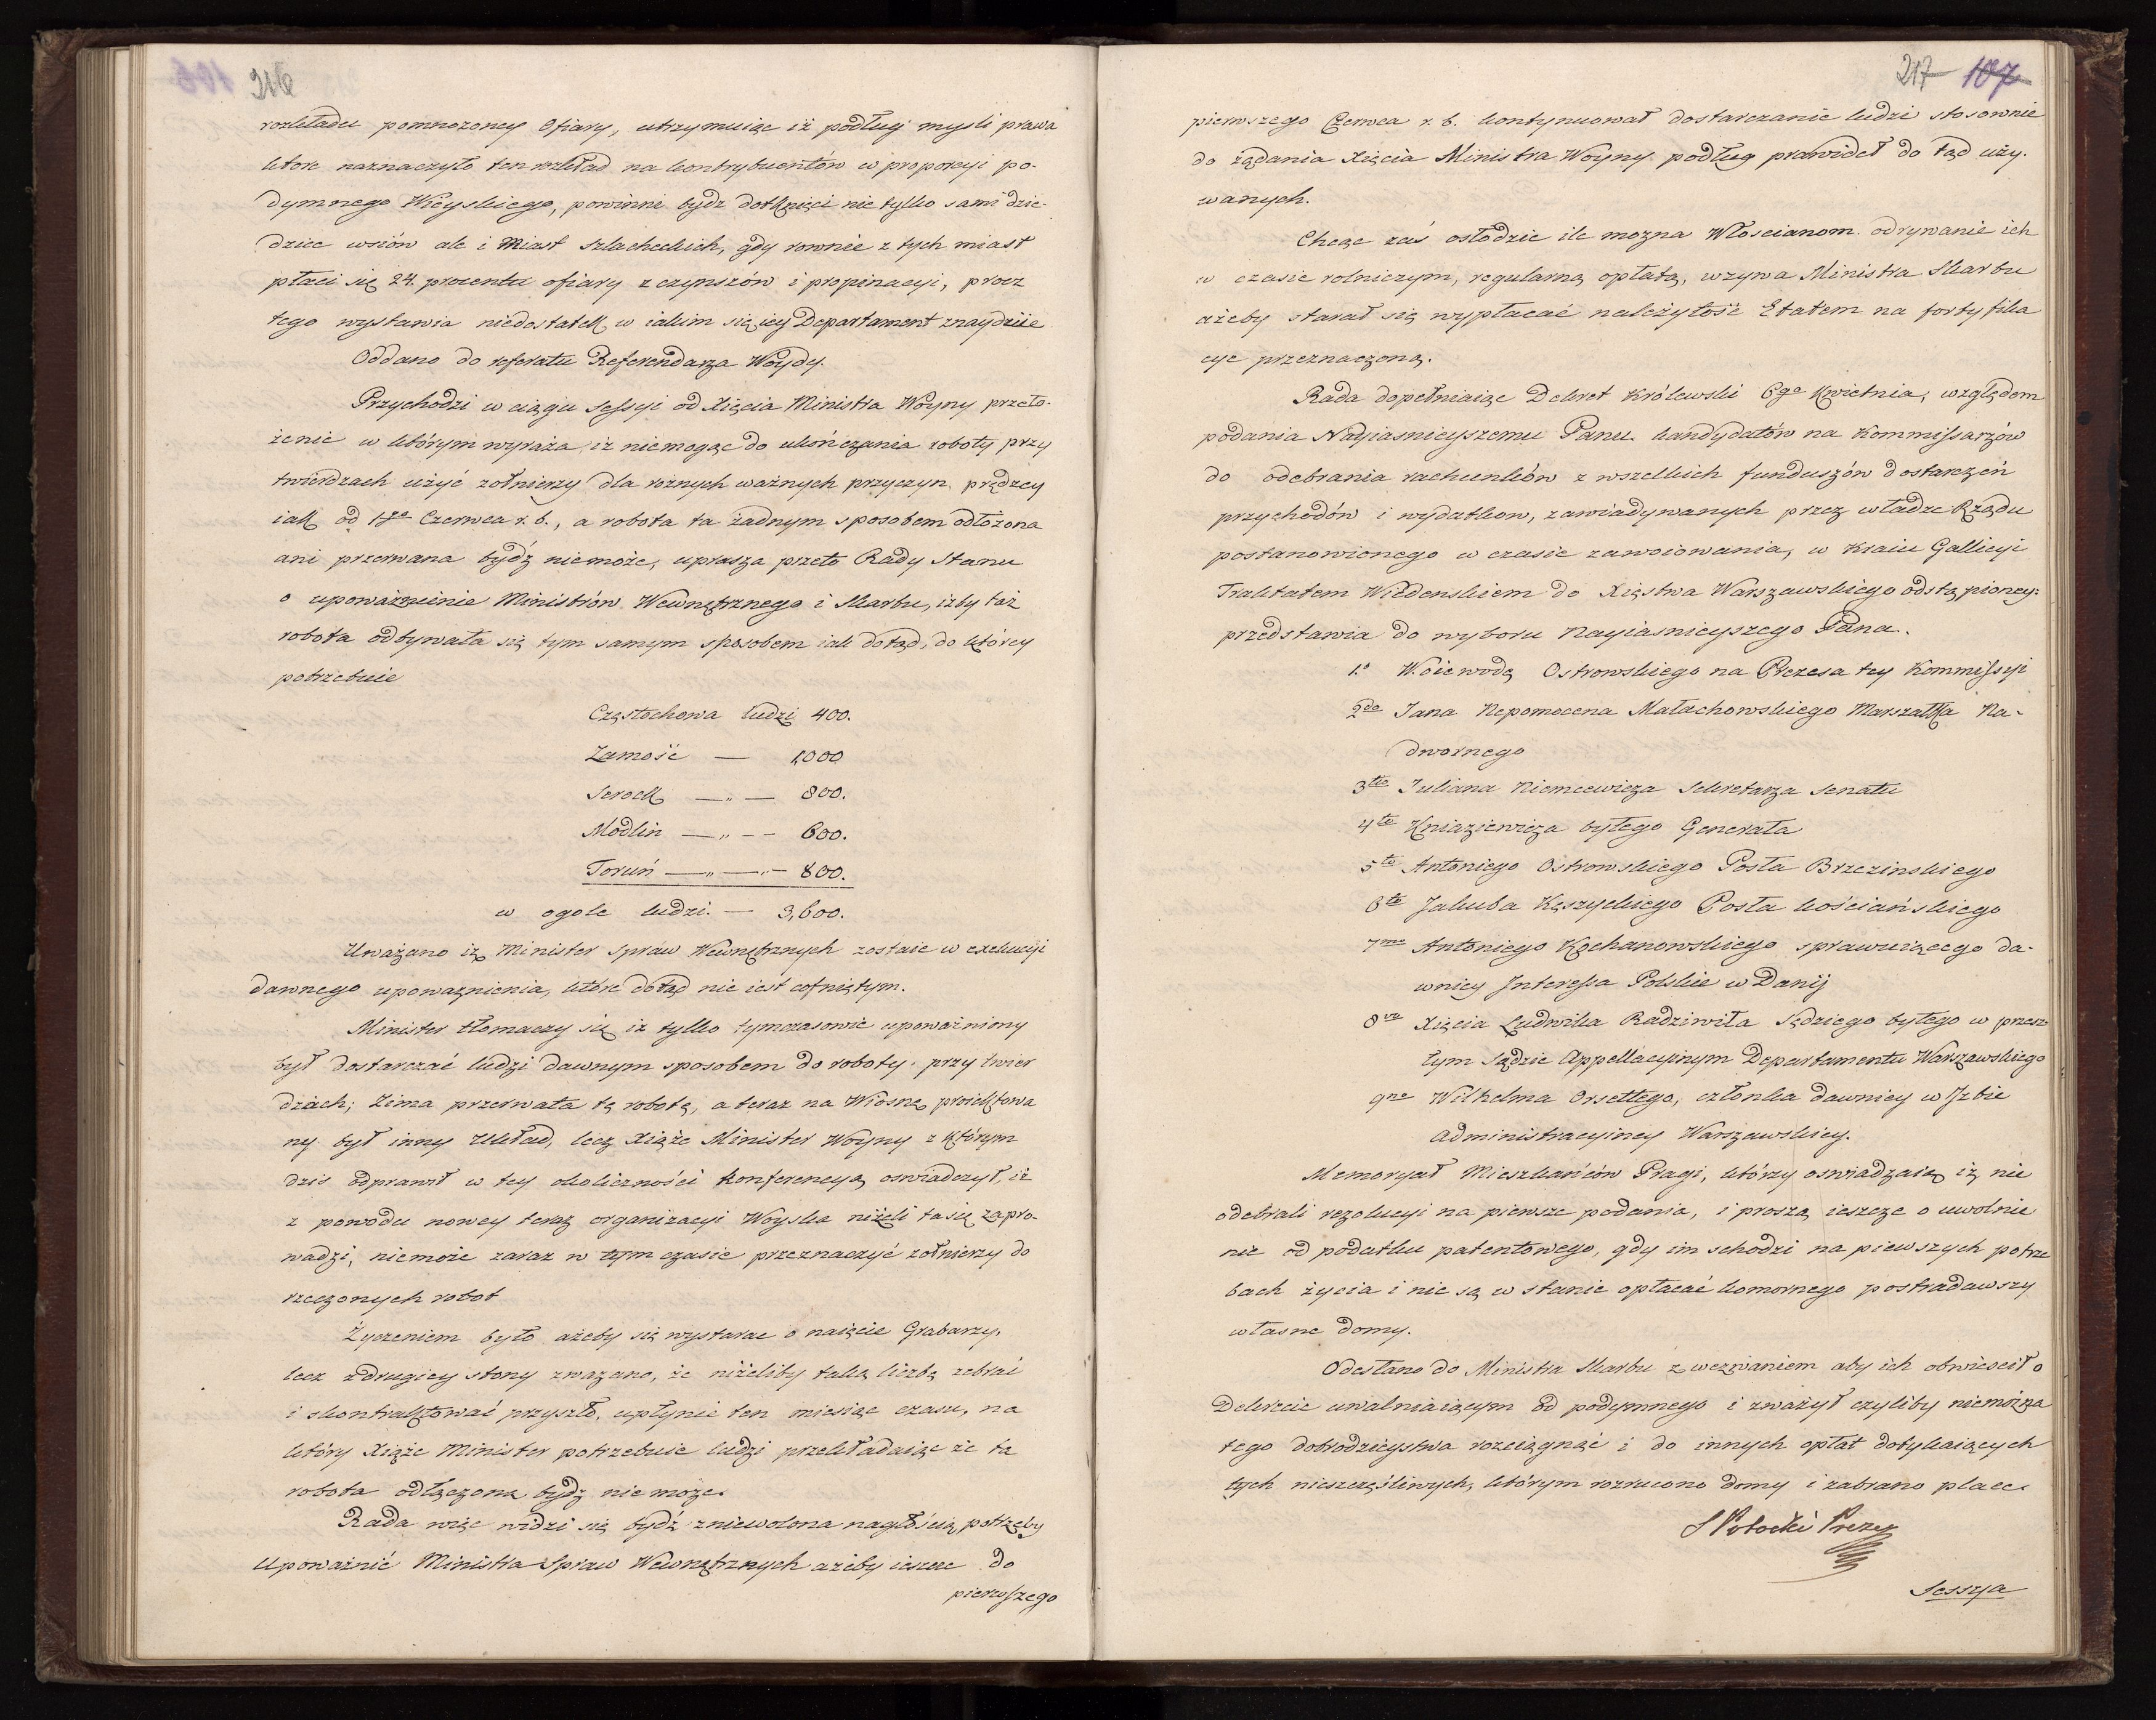 216
rozkładu pomnożoney Ofiary, utrzymuiąc iż podług mysli prawa
ktore naznaczyło ten rozkład na kontrybuentów w proporcyi po-
dymnego Wieyskiego, powinni bydz dotknięci nie tylko sami dzie-
dzice wsiów ale i Miast szlacheckich, gdy rownie z tych miast
płaci się 24. procentu ofiary z czynszów i propinacyi, procz
tego wystawia niedostatek w iakim się iey Departament znaydzie
Oddano do referatu Referendarza Woydy.
Przychodzi w ciągu Sessyi od Xięcia Ministra Woyny przeło-
żenie w którym wyraża, iż niemogąc do ukończania roboty przy
twierdzach użyć zołnierzy dla rożnych ważnych przyczyn prędzey
iak od 1go Czerwca r. b., a robota ta żadnym sposobem odłożona
ani przerwana bydź niemoże, uprasza przeto Rady Stanu
o upoważnienie Ministrów Wewnętrznego i Skarbu, izby taż
robota odbywała się tym samym sposobem iak dotąd, do którey
potrzebuie
Częstochowa ludzi 400.
Zamość — 1,000
Serock — „ — 800.
Modlin — „ — 600.
Toruń — „ — „ — 800.
w ogole ludzi. — 3,600.
Uważano iż Minister Spraw Wewnętrznych zostaie w exekucyi
dawnego upoważnienia, które dotąd nie iest cofniętym.
Minister tłomaczy się iz tylko tymczasowie upoważniony
był dostarczać ludzi dawnym sposobem do roboty przy twier
dzach; Zima przerwała tę robotę, a teraz na Wiosnę proiektowa
ny był inny układ, lecz Xiąże Minister Woyny z którym
dzis odprawił w tey okoliczności konferencyą oswiadczył, iż
z powodu nowey teraz organizacyi Woyska niżeli ta się zapro-
wadzi, niemoże zaraz w tym czasie przeznaczyć zołnierzy do
rzeczonych robot
Życzeniem było ażeby się wystarac o naięcie Grabarzy,
lecz z drugiey stony zważano, że niżeliby taką liczbę zebrać
i skontraktować przyszło, upłynie ten miesiąc czasu, na
który Xiąże Minister potrzebuie ludzi przekładaiąc że ta
robota odłączona bydź nie może.
Rada więc widzi się bydź zniewolona nagłością potrzeby
Upoważnić Ministra Spraw Wewnętrznych azeby ieszcze do
pierwszego
217 107
pierwszego Czerwca r. b. kontynuował dostarczanie ludzi stosownie
do żądania Xięcia Ministra Woyny podług prawideł do tąd uży-
wanych.
Chcąc zaś osłodzic ile mozna Włoscianom odrywanie ich
w czasie rolniczym, regularną opłatą, wzywa Ministra Skarbu
ażeby starał się wypłacać należytość Etatem na fortyfika
cye przeznaczoną.
Rada dopełniaiąc Dekret Królewski 6go Kwietnia, względem
podania Nayiasnieyszemu Panu kandydatów na Kommissarzów
do odebrania rachunków z wszelkich funduszów dostarczeń
przychodów i wydatkow, zawiadywanych przez władze Rządu
postanowionego w czasie zawoiowania, w Kraiu Gallicyi
Traktatem Wiedenskiem do Xięstwa Warszawskiego odstąpioney:
przedstawia do wyboru Nayiasnieyszego Pana.
1o Woiewodę Ostrowskiego na Prezesa tey Kommissyi
2do Jana Nepomocena Małachowskiego Marszałka Na-
dwornego
3tio Juliana Niemcewicza Sekretarza Senatu
4to Kniaziewicza byłego Generała
5to Antoniego Ostrowskiego Posła Brzezinskiego
6to Jakuba Kęszyckiego Posła kościańskiego
7mo Antoniego Kochanowskiego sprawuiącego da-
wniey Interessa Polskie w Danij
8vo Xięcia Ludwika Radziwiła Sędziego byłego w przesz
łym Sądzie Appellacyinym Departamentu Warszawskiego
9no Wilhelma Orsettego, członka dawniey w Jzbie
Administracyiney Warszawskiey.
Memoryał Mieszkańców Pragi, którzy oswiadzaią iż nie
odebrali rezolucyi na pierwsze podania, i proszą ieszcze o uwolnie
nie od podatku patentowego, gdy im schodzi na piewszych potrze
bach życia i nie są w stanie opłacać komornego postradawszy
własne domy.
Odesłano do Ministra Skarbu z wezwaniem aby ich obwiescił o
Dekrecie uwalniaiącym od podymnego i zważył czyliby niemożna
tego dobrodzieystwa rozciągnąć i do innych opłat dotykaiących
tych nieszczęśliwych, którym rozrucono domy i zabrano place.
S Potocki Prezes
Sessya